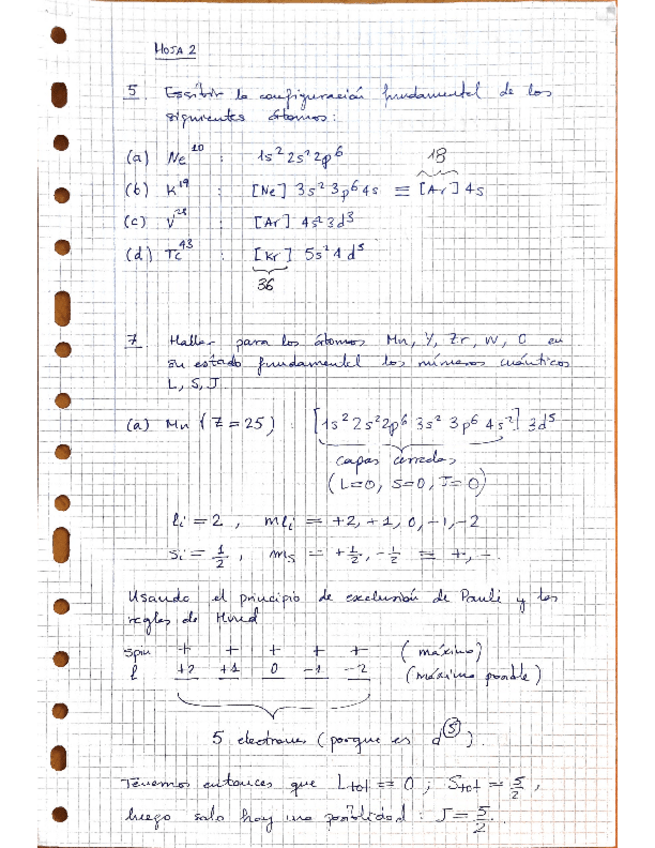 HOJA 2
5. Escribir la configuración fundamental de los
siguientes átomos:
(a) Ne¹⁰ : 1s² 2s² 2p⁶ 18
(b) K¹⁹ : [Ne] 3s² 3p⁶ 4s ≡ [Ar] 4s
(c) V²³ : [Ar] 4s² 3d³
(d) Tc⁴³ : [Kr] 5s² 4d⁵
36
7. Hallar para los átomos Mn, Y, Zr, W, C en
su estado fundamental los números cuánticos
L, S, J.
(a) Mn (Z=25) : [1s² 2s² 2p⁶ 3s² 3p⁶ 4s²] 3d⁵
capas cerradas
(L=0, S=0, J=0)
li = 2 , mli = +2, +1, 0, -1, -2
si = 1/2 , ms = +1/2, -1/2 ≡ +, -
Usando el principio de exclusión de Pauli y las
reglas de Hund
spin + + + + + (máximo)
l +2 +1 0 -1 -2 (máximo posible)
5 electrones (porque es d⁵).
Tenemos entonces que Ltot = 0 ; Stot = 5/2 ,
luego solo hay una posibilidad : J = 5/2.